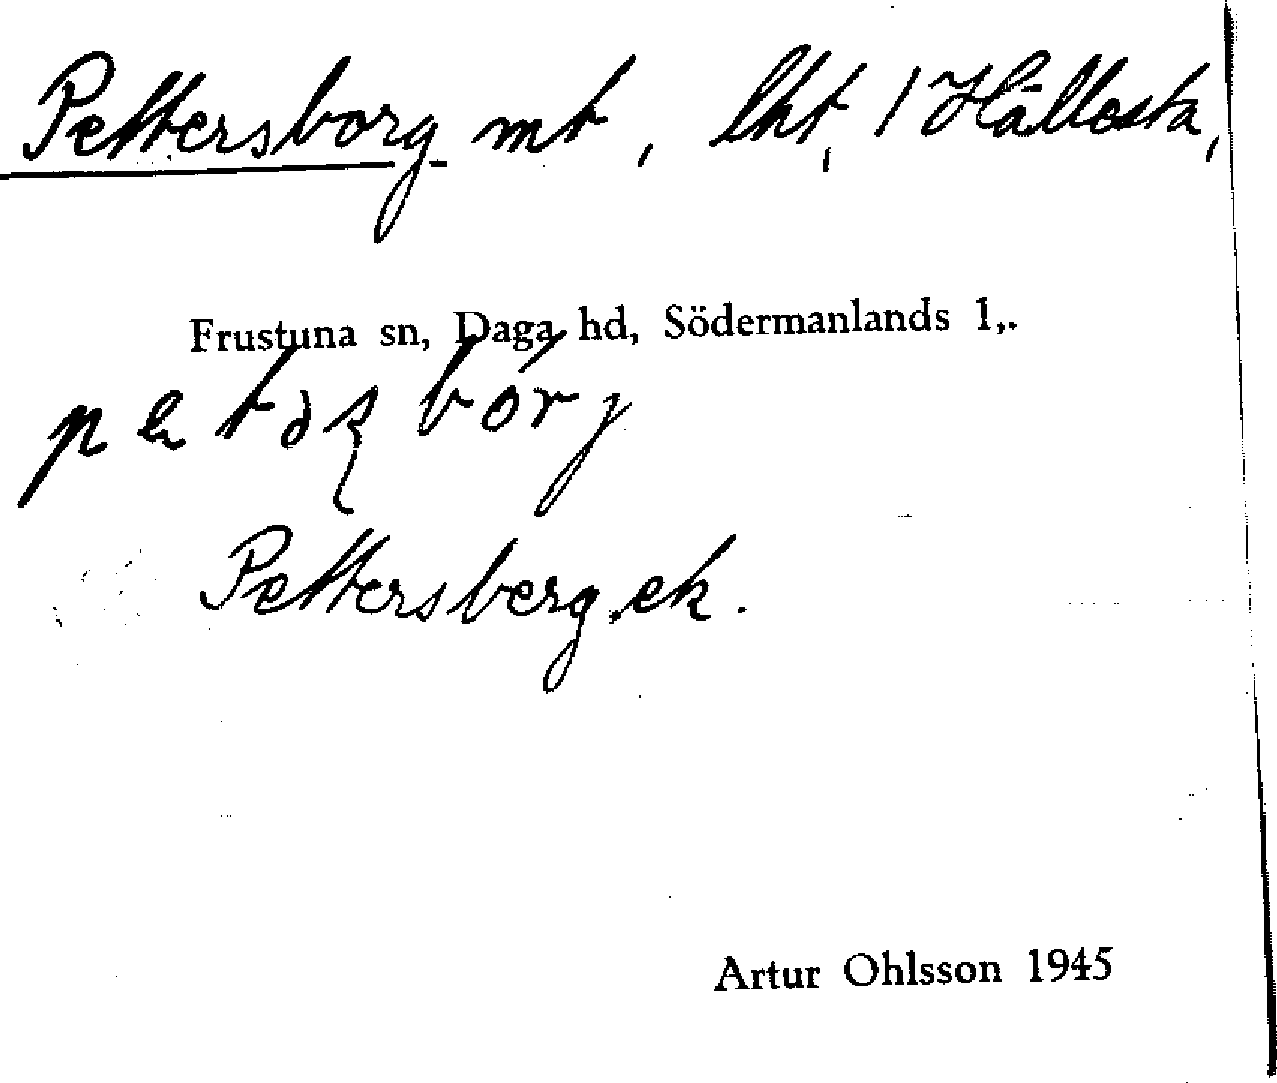 Pettersborg mt, lht, 1 Hållesta,
Frustuna sn, Daga hd, Södermanlands l,.
Pettersberg ek.
Artur Ohlsson 1945